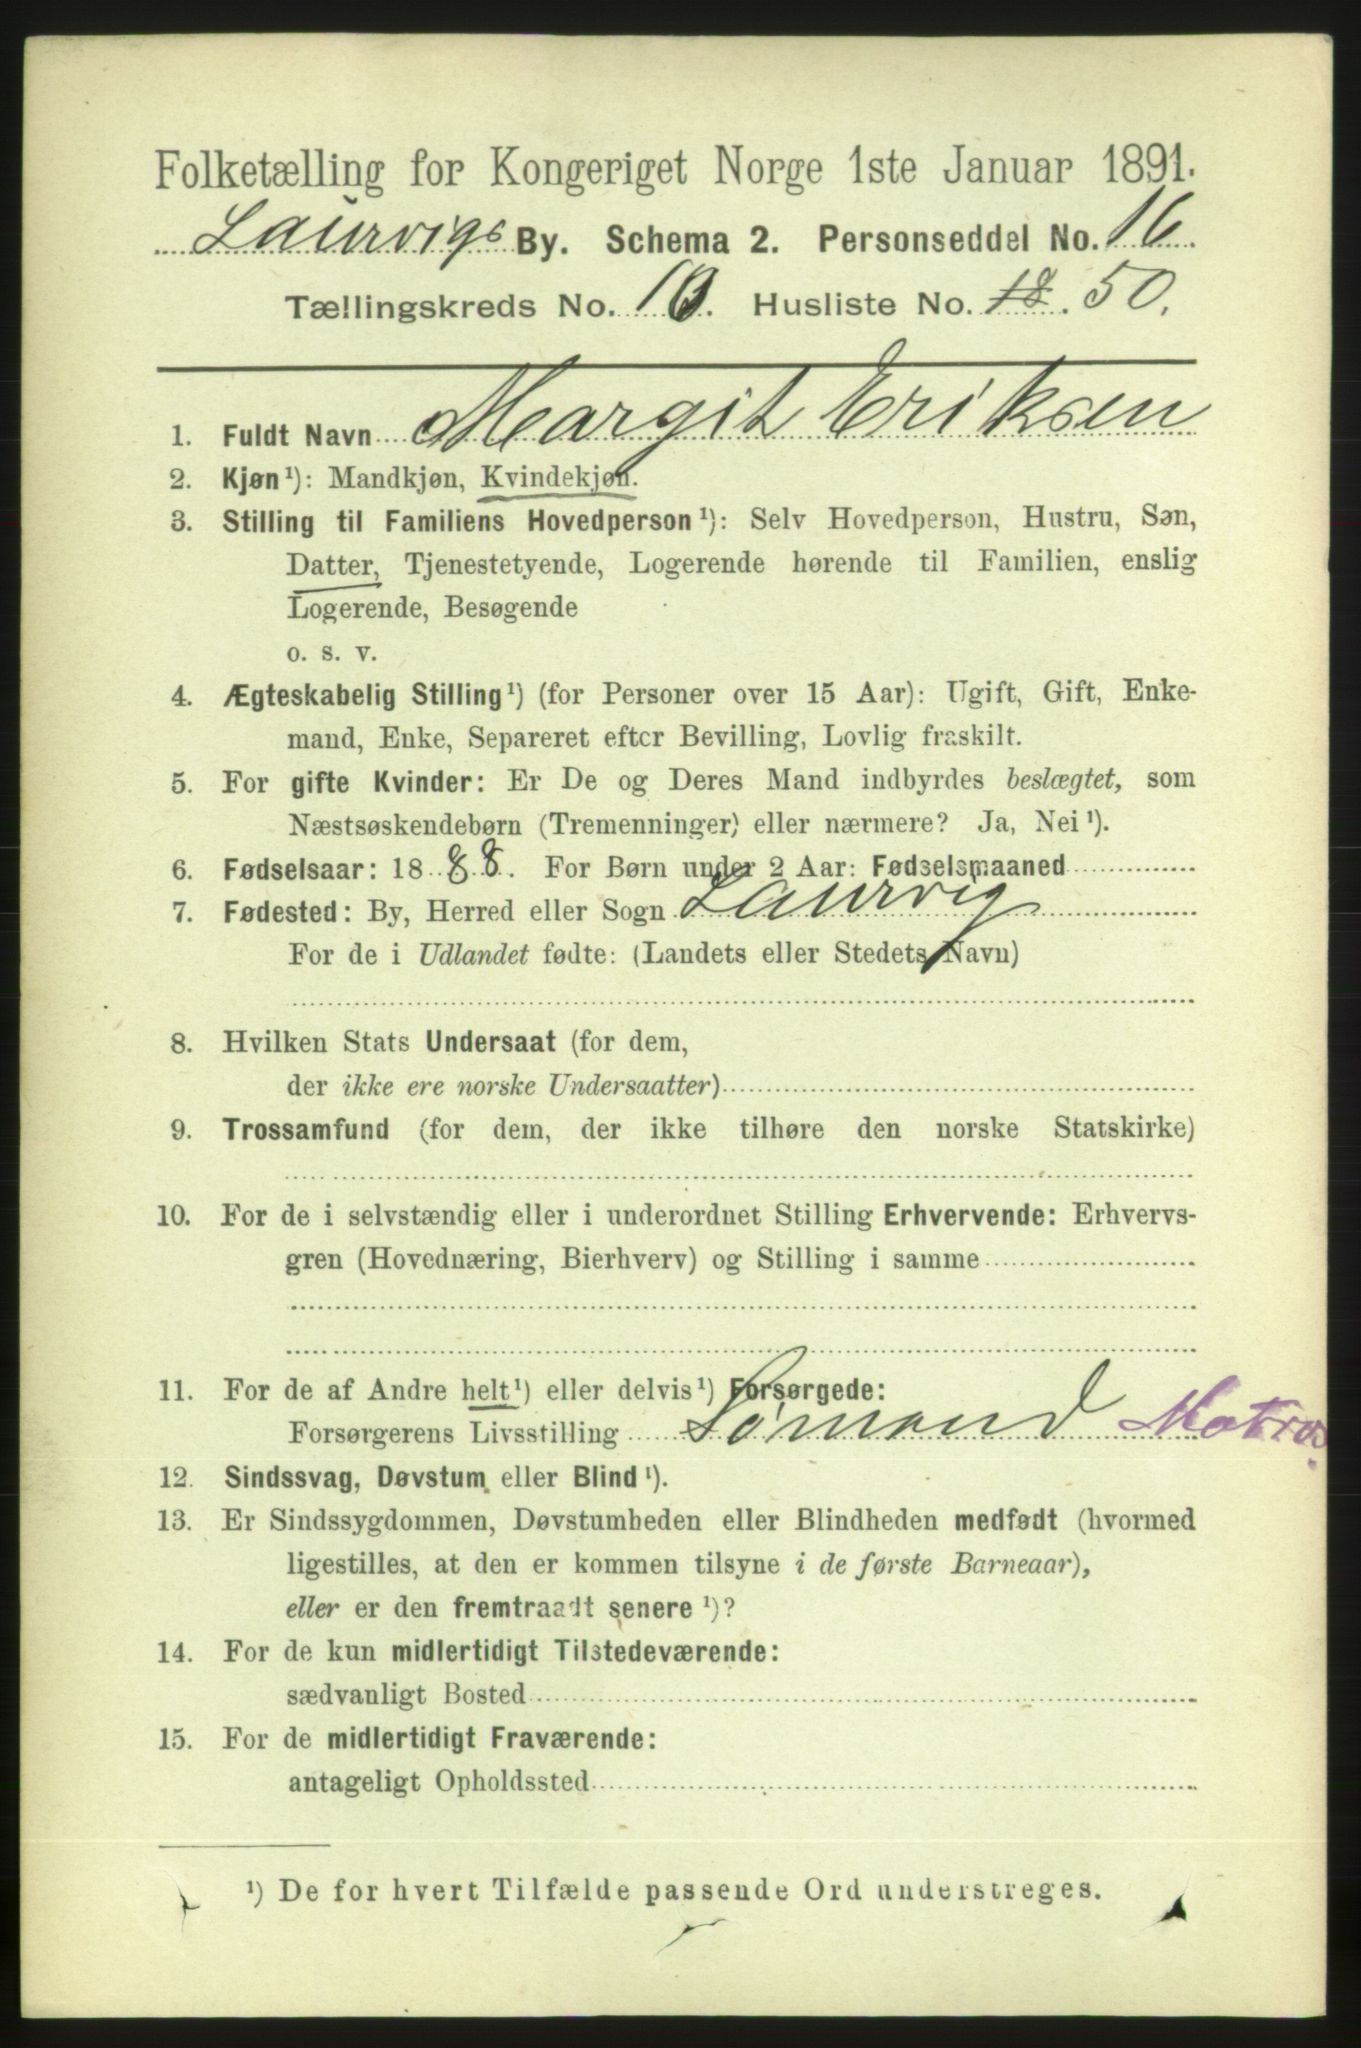 Folketælling for Kongeriget Norge 1ste Januar 1891.
Laurvigs By. Schema 2. Personseddel No. 16
Tællingskreds No. 10. Husliste No. 18. 50.
1. Fuldt Navn Margit Eriksen
2. Kjøn¹): Mandkjøn, Kvindekjøn.
3. Stilling til Familiens Hovedperson¹): Selv Hovedperson, Hustru, Søn,
Datter, Tjenestetyende, Logerende hørende til Familien, enslig
Logerende, Besøgende
o. s. v.
4. Ægteskabelig Stilling¹) (for Personer over 15 Aar): Ugift, Gift, Enke-
mand, Enke, Separeret efter Bevilling, Lovlig fraskilt.
5. For gifte Kvinder: Er De og Deres Mand indbyrdes beslægtet, som
Næstsøskendebørn (Tremenninger) eller nærmere? Ja, Nei¹).
6. Fødselsaar: 1888. For Børn under 2 Aar: Fødselsmaaned
7. Fødested: By, Herred eller Sogn Laurvig
For de i Udlandet fødte: (Landets eller Stedets Navn)
8. Hvilken Stats Undersaat (for dem,
der ikke ere norske Undersaatter)
9. Trossamfund (for dem, der ikke tilhøre den norske Statskirke)
10. For de i selvstændig eller i underordnet Stilling Erhvervende: Erhvervs-
gren (Hovednæring, Bierhverv) og Stilling i samme
11. For de af Andre helt¹) eller delvis¹) Forsørgede:
Forsørgerens Livsstilling Sømand Matros
12. Sindssvag, Døvstum eller Blind¹).
13. Er Sindssygdommen, Døvstumheden eller Blindheden medfødt (hvormed
ligestilles, at den er kommen tilsyne i de første Barneaar),
eller er den fremtraadt senere¹)?
14. For de kun midlertidigt Tilstedeværende:
sædvanligt Bosted
15. For de midlertidigt Fraværende:
antageligt Opholdssted
¹) De for hvert Tilfælde passende Ord understreges.